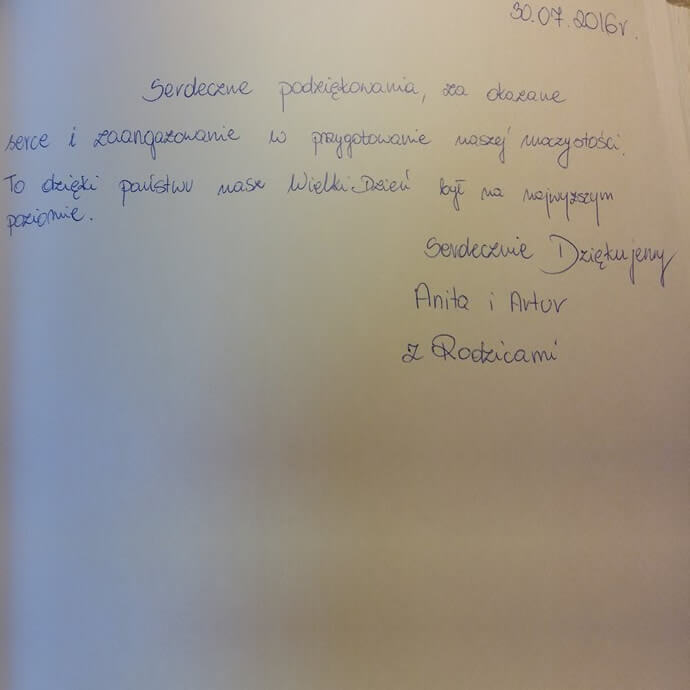 30.07.2016r.
Serdeczne podziękowania, za okazane
serce i zaangażowanie w przygotowanie naszej uroczystości.
To dzięki państwu nasz Wielki Dzień był na najwyższym
poziomie.
Serdecznie Dziękujemy
Anita i Artur
z Rodzicami